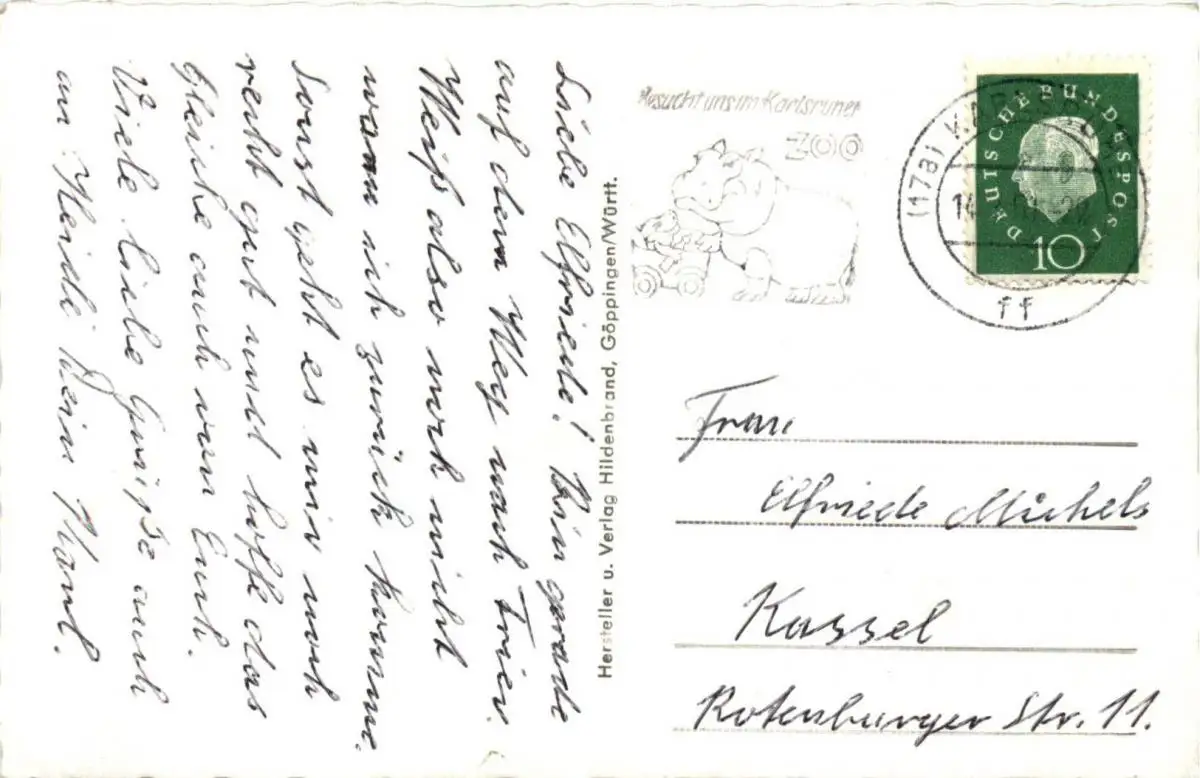 Liebe Elfriede! Bin gerade
auf dem Weg nach Trier.
Weiß also noch nicht
wann ich zurück komme.
Sonst geht es mir noch
recht gut und hoffe das
gleiche auch von Euch.
Viele liebe Grüße auch
an Heidi Dein
Hersteller u. Verlag Hildenbrand, Göppingen/Württ.
Besucht uns im Karlsruher
ZOO
(17a) KARLSRUHE
ff
DEUTSCHE BUNDESPOST
10
Frau
Elfriede Michels
Kassel
Rotenburger Str. 11.